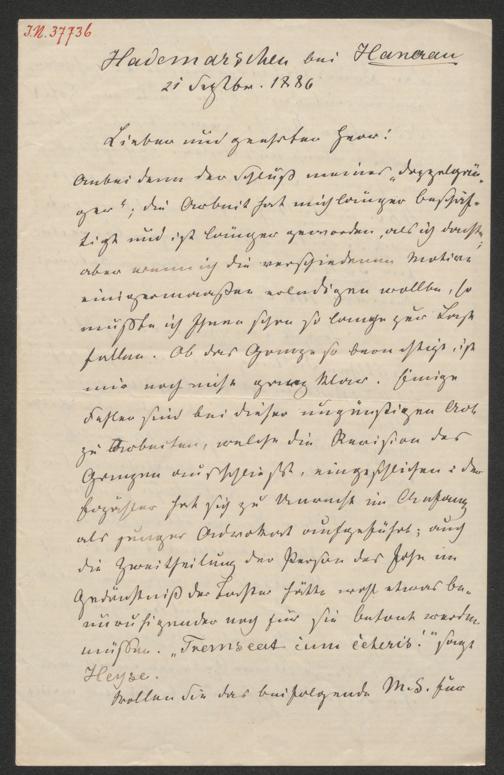 J.N. 37736
Hademarschen bei Hanerau
21 Septbr. 1886
Lieber und geehrter Herr!
Anbei denn der Schluß meines „Doppelgän-
ger“; die Arbeit hat mich länger beschäf-
tigt und ist länger geworden, als ich dachte;
aber wenn ich die verschiedenen Motive
einigermaaßen erledigen wollte, so
mußte ich Ihnen schon so lange zur Last
fallen. Ob das Ganze so berechtigt, ist
mir noch nicht ganz klar. Einige
Fehler sind bei dieser ungünstigen Art
zu arbeiten, welche die Revision des
Ganzen ausschließt, eingeschlichen: der
Erzähler hat sich zu Unrecht im Anfang
als junger Advokat aufgeführt; auch
die Zweitheilung der Person des John im
Gedächtniß der Tochter hätte wohl etwas be-
unruhigender noch für sie betont werden
müssen. „Transeat cum ceteris!“ sagt
Heyse.
Wollen Sie das beifolgende M.S. für